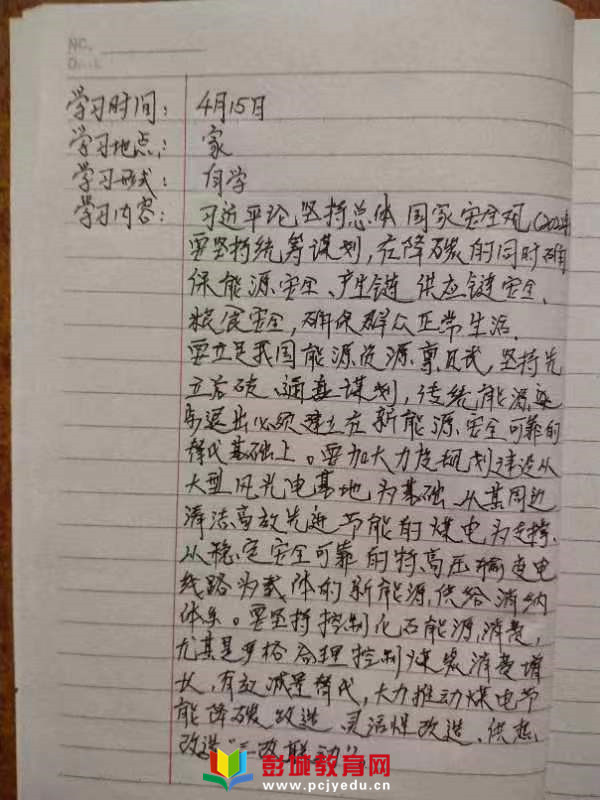 NO.
学习时间: 4月15日
学习地点: 家
学习形式: 自学
学习内容: 习近平论坚持总体国家安全观(2022年
要坚持统筹谋划,在降碳的同时确
保能源安全、产业链供应链安全、
粮食安全,确保群众正常生活.
要立足我国能源资源禀赋,坚持先
立后破、通盘谋划,传统能源逐
步退出必须建立在新能源安全可靠的
替代基础上。要加大力度规划建设从
大型风光电基地为基础从其周边
清洁高效先进节能的煤电为支撑、
从稳定安全可靠的特高压输变电
线路为载体的新能源供给消纳
体系。要坚持控制化石能源消费,
尤其是严格合理控制煤炭消费增
长,有效减量替代,大力推动煤电节
能降碳改造、灵活性改造、供热
改造"三改联动"
彭城教育网
www.pcjyedu.cn